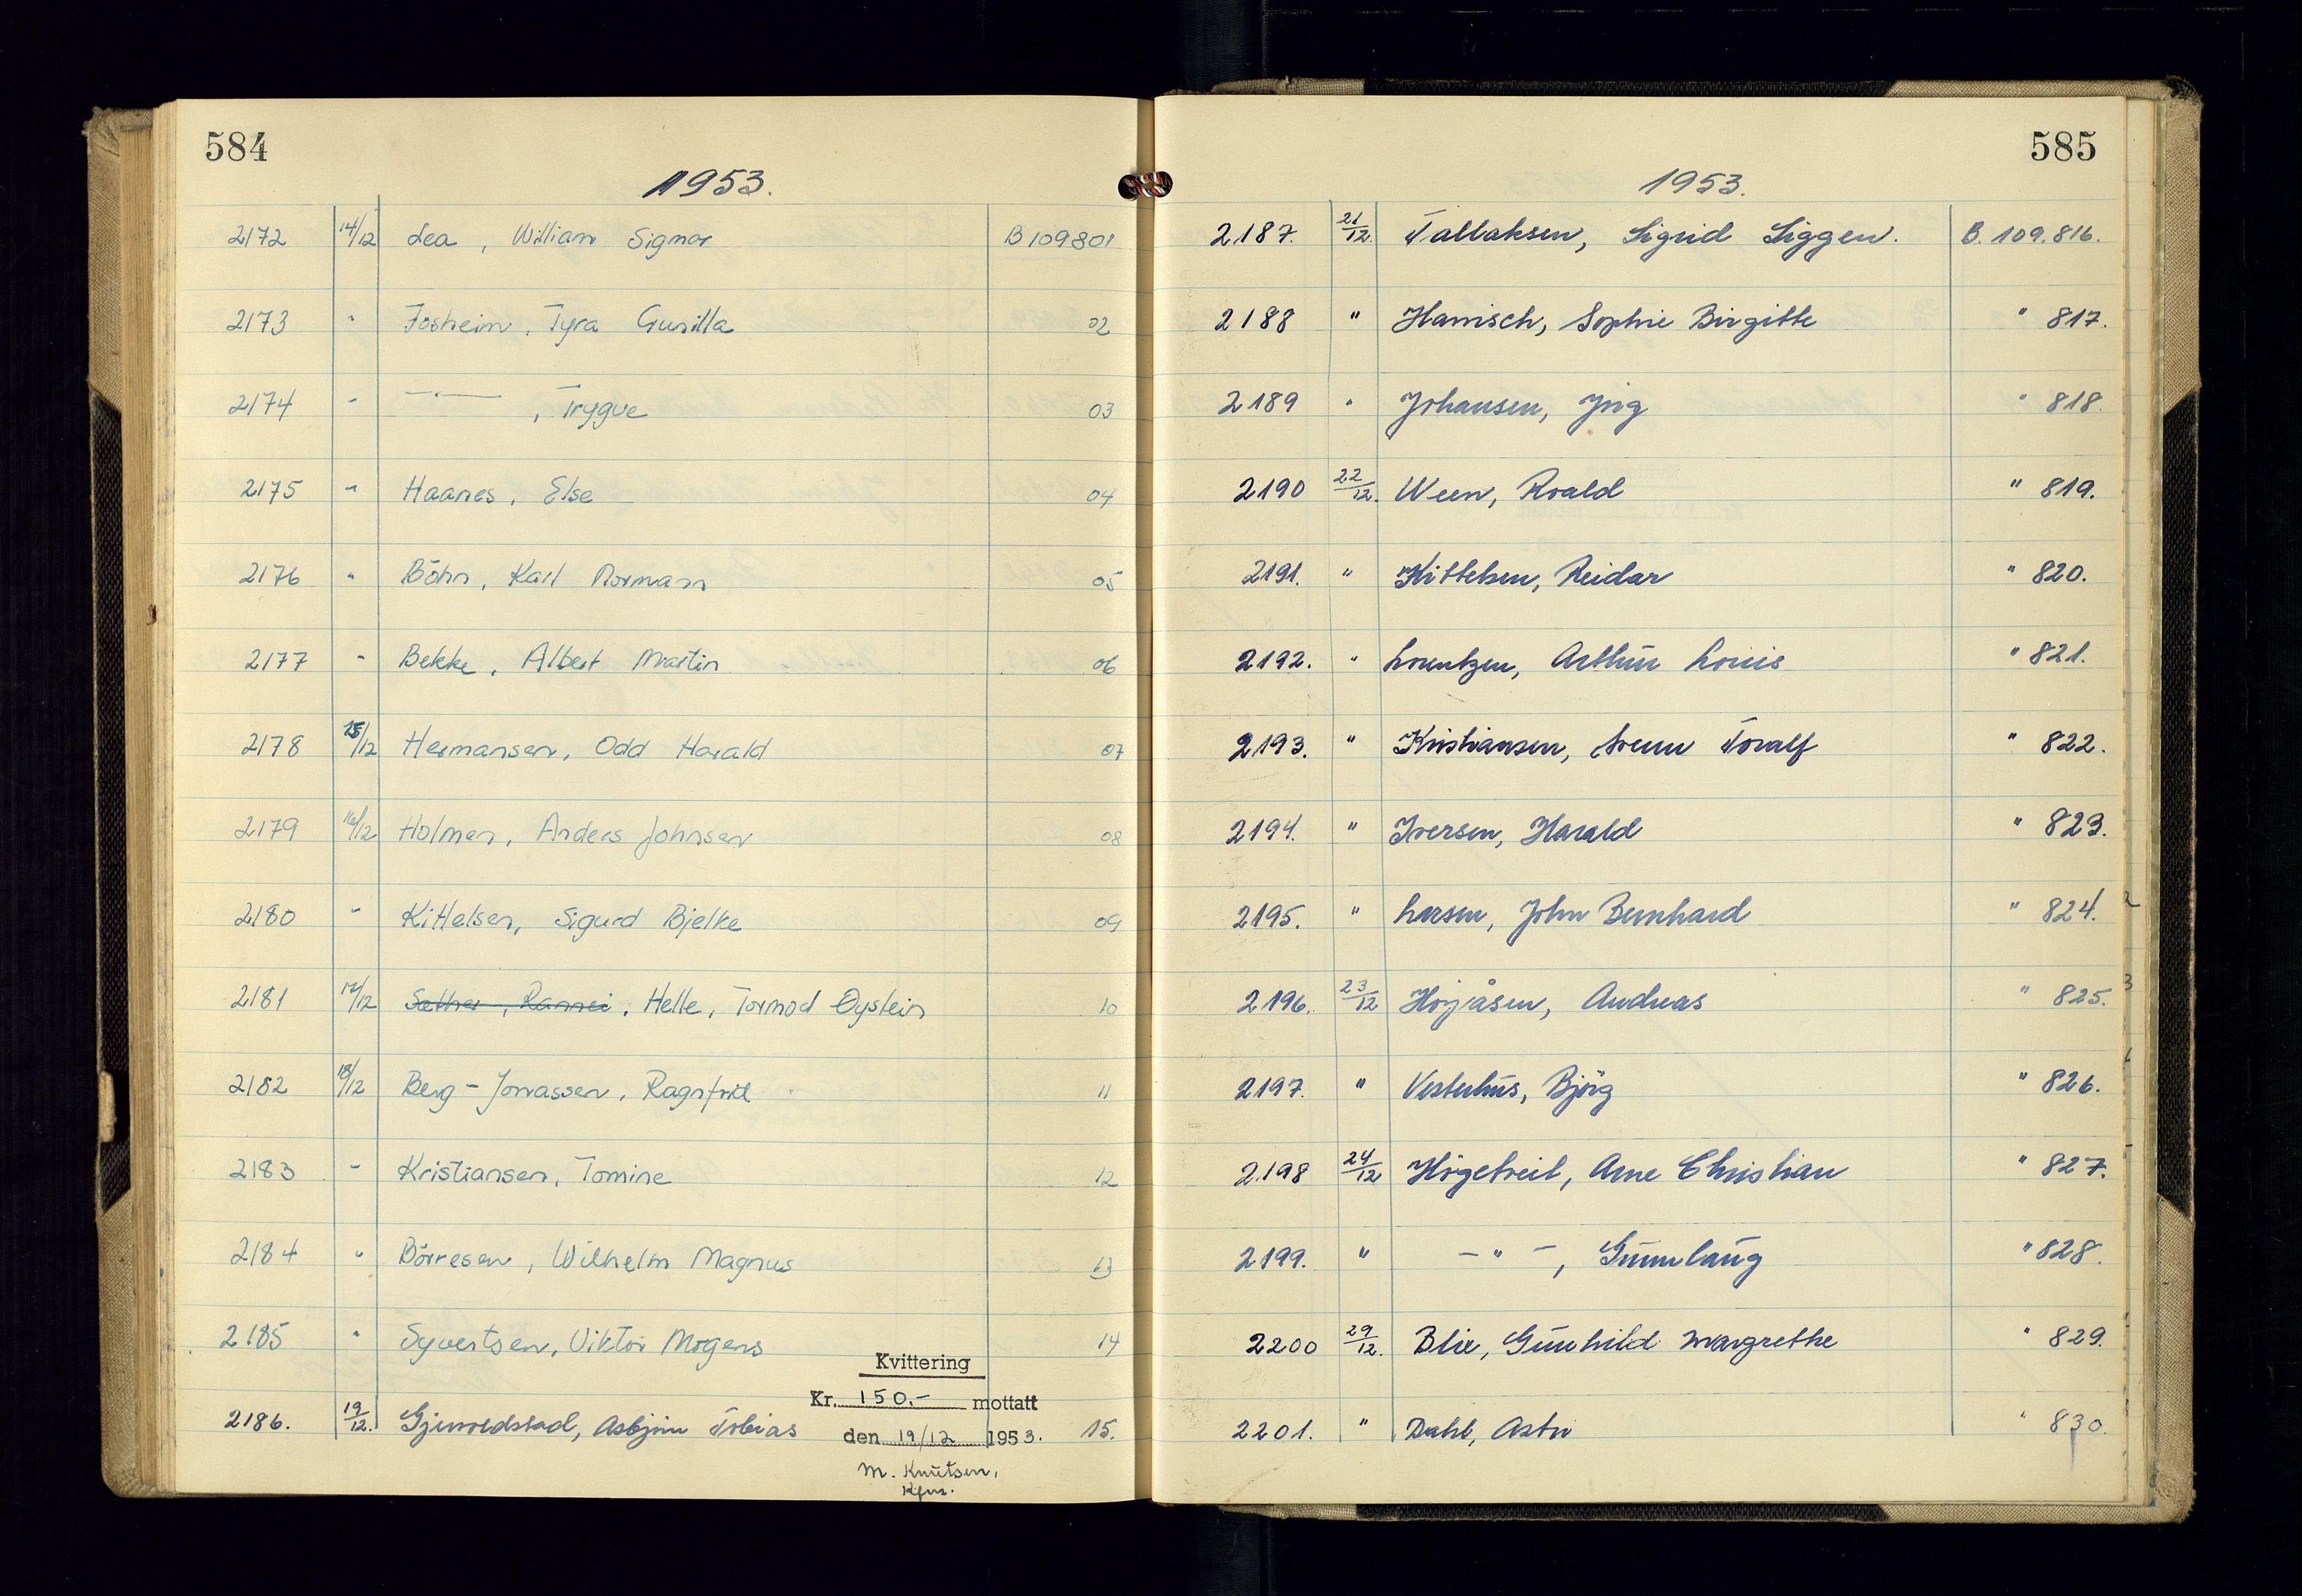 584
1953.
2172 14/12 Lea, William Sigmar B109801
2173 " Fosheim, Tyra Gunilla 02
2174 - —·— , Trygve 03
2175 " Haanes, Else 04
2176 " Böhn, Karl Normann 05
2177 " Bekke, Albert Martin 06
2178 15/12 Hermansen, Odd Harald 07
2179 16/12 Holmen, Anders Johnsen 08
2180 " Kittelsen, Sigurd Bjelke 09
2181 17/12 Sæther, Rannei, Helle, Tormod Øystein 10
2182 18/12 Berg-Jonassen, Ragnfrid 11
2183 - Kristiansen, Tomine 12
2184 " Börresen, Wilhelm Magnus 13
2185 " Syvertsen, Viktor Mogens 14
2186. 19/12. Asbjørn Tobias 15.
Kvittering
Kr. 150.- mottatt
den 19/12 1953.
M. Knutsen,
585
1953.
2187. 21/12. Tallaksen, Sigrid Siggen. B. 109.816.
2188 " Hanisch, Sophie Birgitte " 817.
2189 " Johansen, " 818.
2190 22/12. Ween, Roald " 819.
2191. " Kittelsen, Reidar " 820.
2192. " Lorentzen, Arthur Louis " 821.
2193. " Kristiansen, Svenn Toralf " 822.
2194. " Iversen, Harald " 823.
2195. " Larsen, John Bernhard " 824.
2196. 23/12 Högåsen, Andreas " 825.
2197. " Vesterhus, Björg " 826.
2198 24/12 Högetveit, Arne Christian " 827.
2199. " — " —, Gunnlaug " 828.
2200 29/12. Blix, Gunhild Margrethe " 829.
2201. " Dahl, Astri " 830.